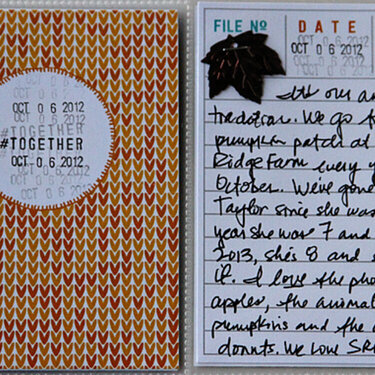 OCT 06 2012
OCT 06 2012
#TOGETHER
OCT 06 2012
OCT 06 2012
FILE Nº DATE
OCT 06 2012
OCT 06 2012
It's our an
tradition. We go t
pumpkin patch at
Ridge Farm every y
October. We've gone
Taylor since she was
year she was 7 and
2013, she's 8 and s
it. I love the pho
apples, the animal
pumpkins and the
donuts. We love SR